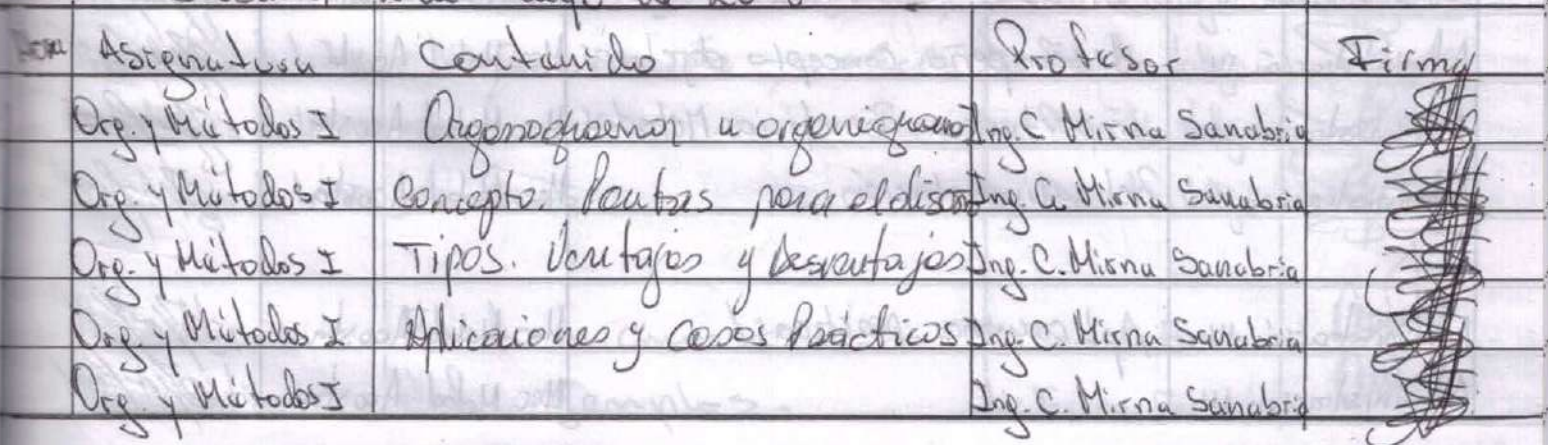 Asignatura Contenido Profesor Firma
Org. y Métodos I Organogramas u organigrama Ing. C. Mirna Sanabria
Org. y Métodos I Concepto. Pautas para el diseño Ing. C. Mirna Sanabria
Org. y Métodos I Tipos. Ventajas y Desventajas Ing. C. Mirna Sanabria
Org. y Métodos I Aplicaciones y Casos Prácticos Ing. C. Mirna Sanabria
Org. y Métodos I Ing. C. Mirna Sanabria